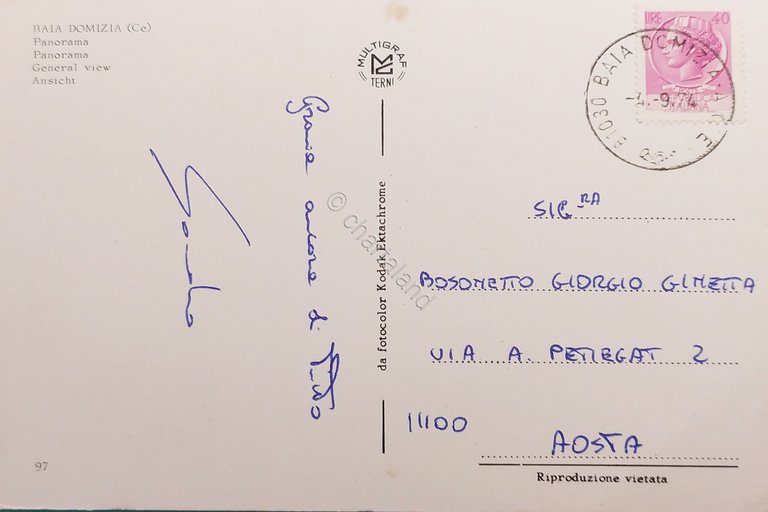 BAIA DOMIZIA (Ce)
Panorama
Panorama
General view
Ansicht
MULTIGRAF
TERNI
LIRE 40
REPUBBLICA
ITALIANA
81030 BAIA DOMIZIA
-9.74
Grazie ancora di tutto
Sandro
© chartaland
da fotocolor Kodak Ektachrome
SIG.RA
BOSONETTO GIORGIO GINETTA
VIA A. PETIEGAT 2
11100
AOSTA
97
Riproduzione vietata